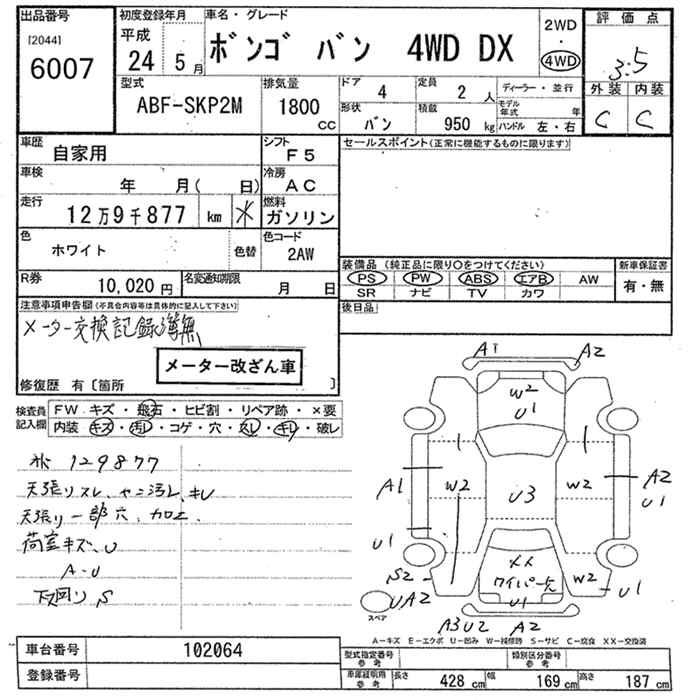 出品番号
[2044]
6007
初度登録年月
平成
24年5月
車名・グレード
ボンゴ バン 4WD DX
2WD
・
4WD
評価点
3.5
外装 内装
C C
型式
ABF-SKP2M
排気量
1800
cc
ドア
4
定員
2 人
ディーラー・並行
形状
バン
積載
950 kg
モデル年式 年
ハンドル 左・右
車歴
自家用
シフト
F5
セールスポイント(正常に機能するものに限ります)
車検
年 月( 日)
冷房
AC
走行
12万9千877 km ※
燃料
ガソリン
色
ホワイト
色替
色コード
2AW
装備品(純正品に限り○をつけてください)
PS PW ABS エアB AW
SR ナビ TV カワ
新車保証書
有・無
R券
10,020円
名変通知期限
月 日
注意事項申告欄(不具合内容等は具体的に記入して下さい)
メーター交換記録簿無
メーター改ざん車
修復歴 有〔箇所 〕
後日品
検査員記入欄
FW キズ・飛石・ヒビ割・リペア跡・×要
内装 キズ・汚レ・コゲ・穴・スレ・キレ・破レ
129877
天張リスレ、ヤニ汚レ、キレ
天張リ一部穴、加工、
荷室キズ、U
A-U
下回りS
A1 A2
W2
U1
A1 W2 U3 W2 A2
U1
U1
S2
UA2
スペア
××
ワイパー欠
U1
W2 U1
A3U2 A2
A-キズ E-エクボ U-凹み W-補修跡 S-サビ C-腐食 XX-交換済
車台番号
102064
登録番号
型式指定番号
参考
類別区分番号
参考
車庫証明用
参考
長さ 428 cm 幅 169 cm 高さ 187 cm